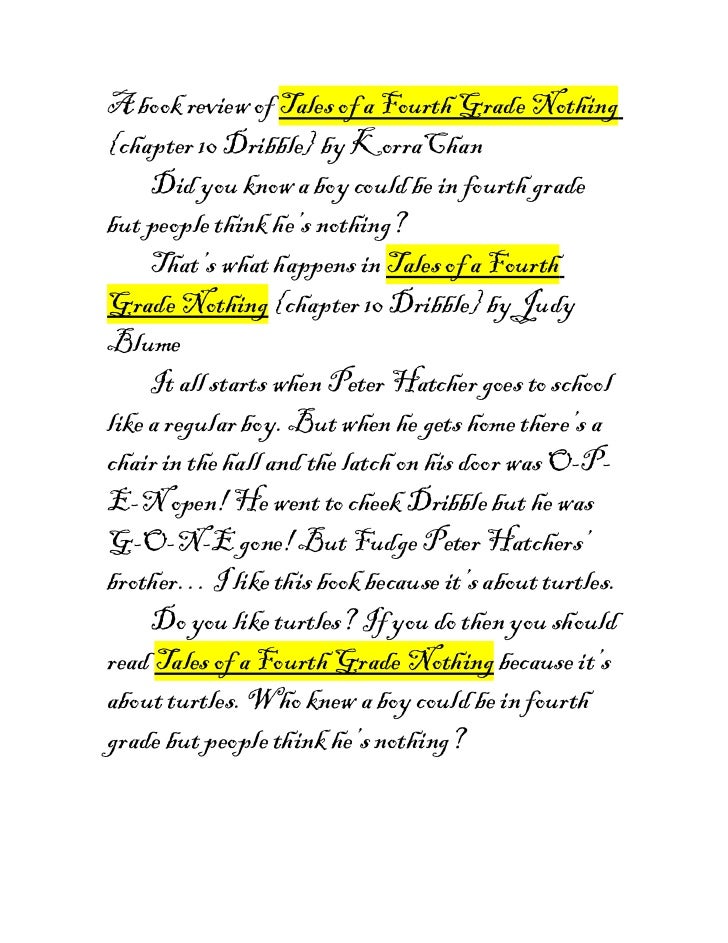 A book review of Tales of a Fourth Grade Nothing
{chapter 10 Dribble} by Korra Chan
Did you know a boy could be in fourth grade
but people think he's nothing?
That's what happens in Tales of a Fourth
Grade Nothing {chapter 10 Dribble} by Judy
Blume
It all starts when Peter Hatcher goes to school
like a regular boy. But when he gets home there's a
chair in the hall and the latch on his door was O-P-
E-N open! He went to cheek Dribble but he was
G-O-N-E gone! But Fudge Peter Hatchers'
brother… I like this book because it's about turtles.
Do you like turtles? If you do then you should
read Tales of a Fourth Grade Nothing because it's
about turtles. Who knew a boy could be in fourth
grade but people think he's nothing?